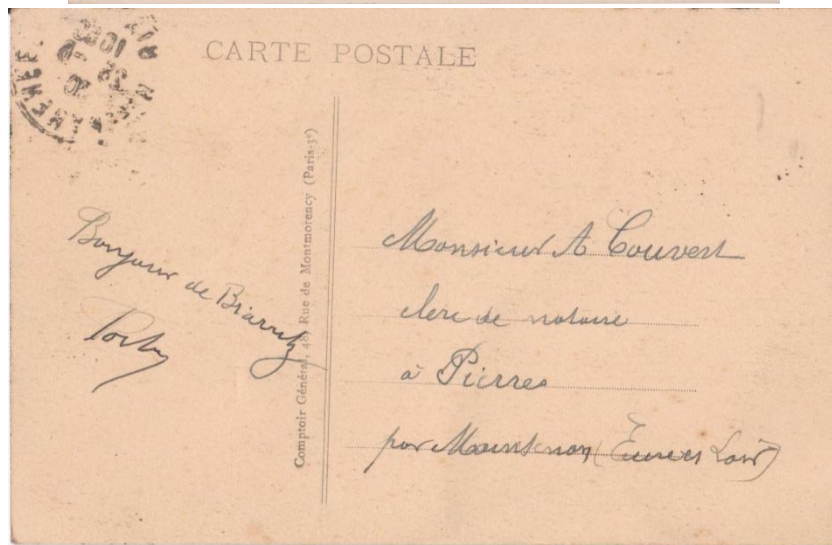 CARTE POSTALE
Bonjour de Biarritz
Comptoir Général, 48, Rue de Montmorency (Paris-3e)
Monsieur A Couvert
clerc de notaire
à Pierres
par Maintenon (Eure et Loir)